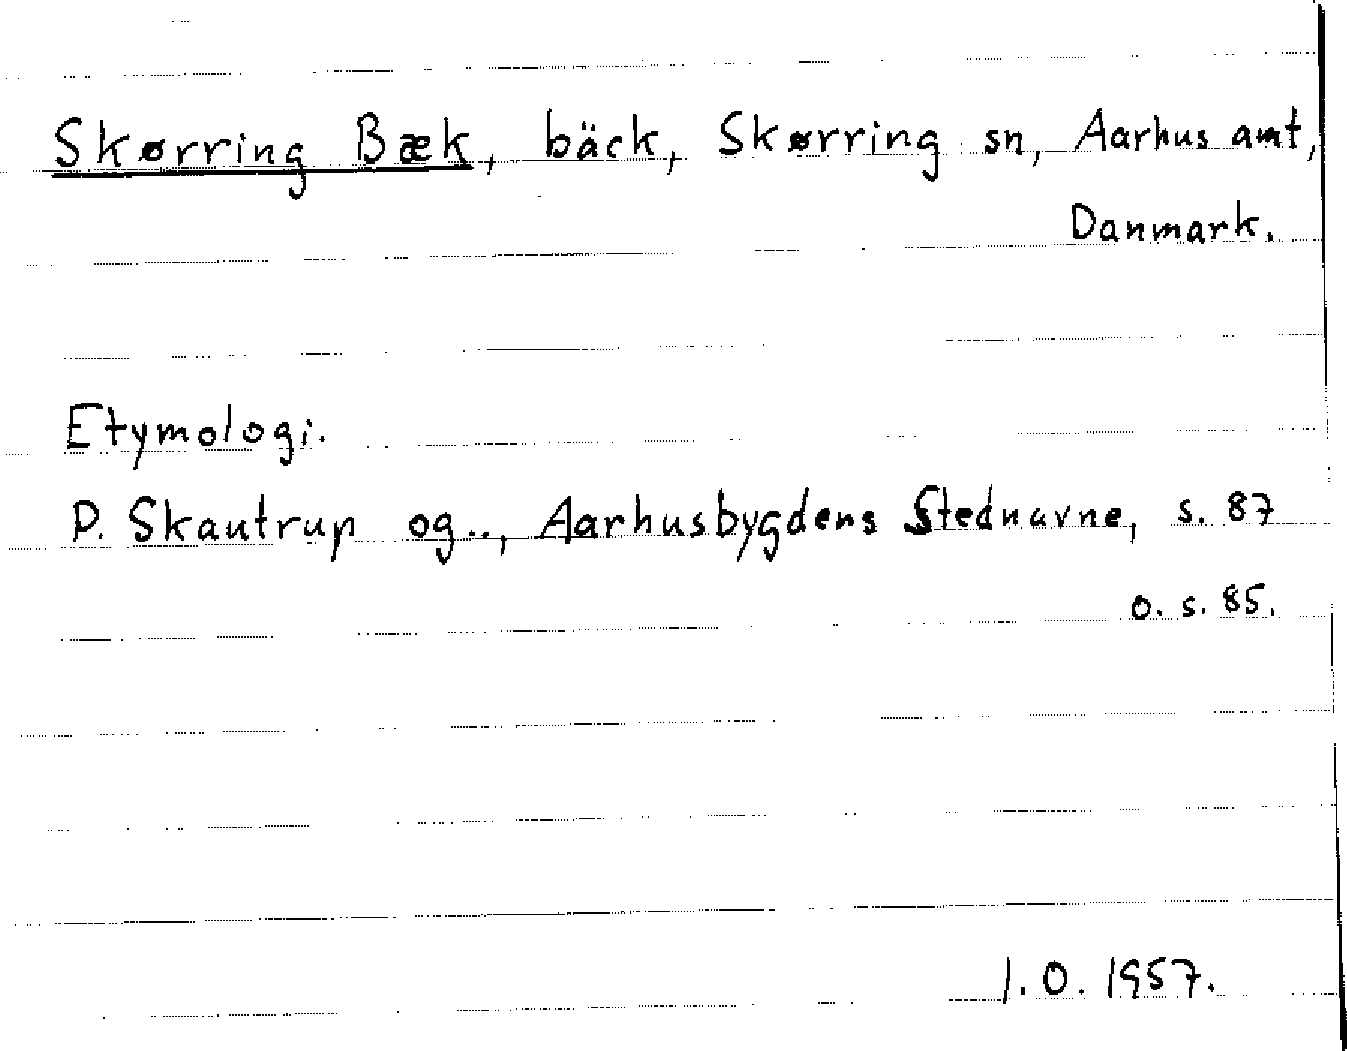 Skørring Bæk, bäck, Skørring sn, Aarhus amt,
Danmark.
Etymologi.
P. Skautrup og.., Aarhusbygdens Stednavne, s. 87
o. s. 85.
1.O. 1957.